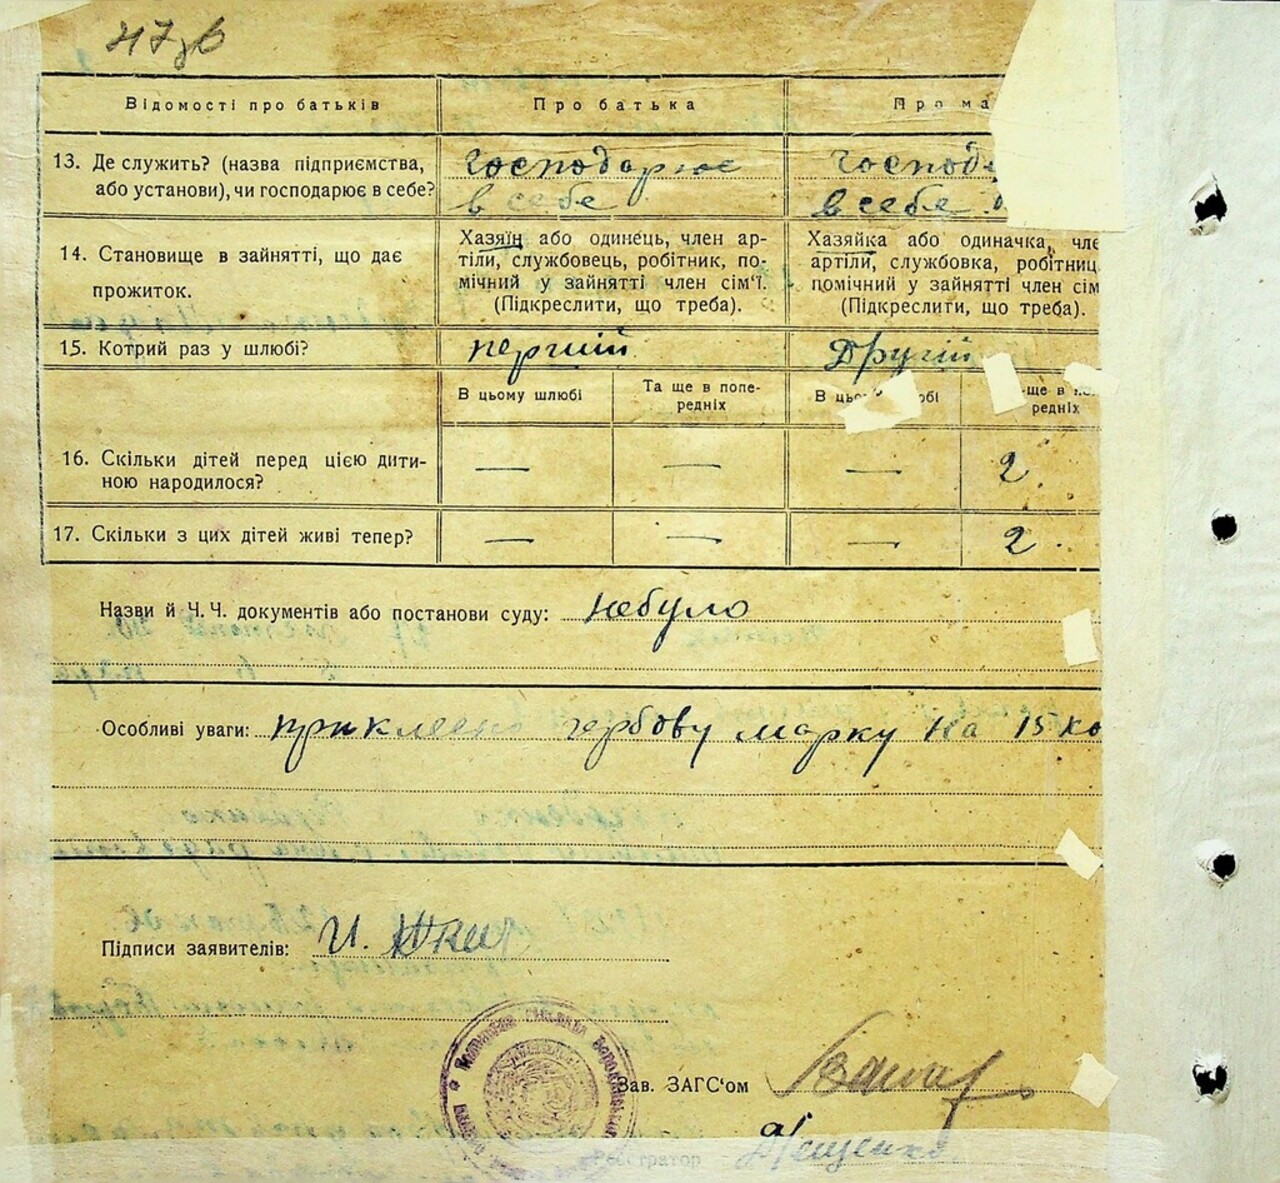 47зв
Відомості про батьків
Про батька
Про ма
13. Де служить? (назва підприємства,
або установи), чи господарює в себе?
господарює
в себе
господа
в себе
14. Становище в зайнятті, що дає
прожиток.
Хазяїн або одинець, член ар-
тілі, службовець, робітник, по-
мічний у зайнятті член сім'ї.
(Підкреслити, що треба).
Хазяйка або одиначка, чле
артілі, службовка, робітниц
помічний у зайнятті член сім
(Підкреслити, що треба).
15. Котрий раз у шлюбі?
перший
Другий
В цьому шлюбі
Та ще в попе-
редніх
В цьо бі
ще в по
редніх
16. Скільки дітей перед цією дити-
ною народилося?
— — — 2.
17. Скільки з цих дітей живі тепер?
— — — 2.
Назви й Ч. Ч. документів або постанови суду: небуло
Особливі уваги: приклеено гербову марку на 15 ко
Підписи заявителів: И.
Зав. ЗАГС'ом
Реєстратор